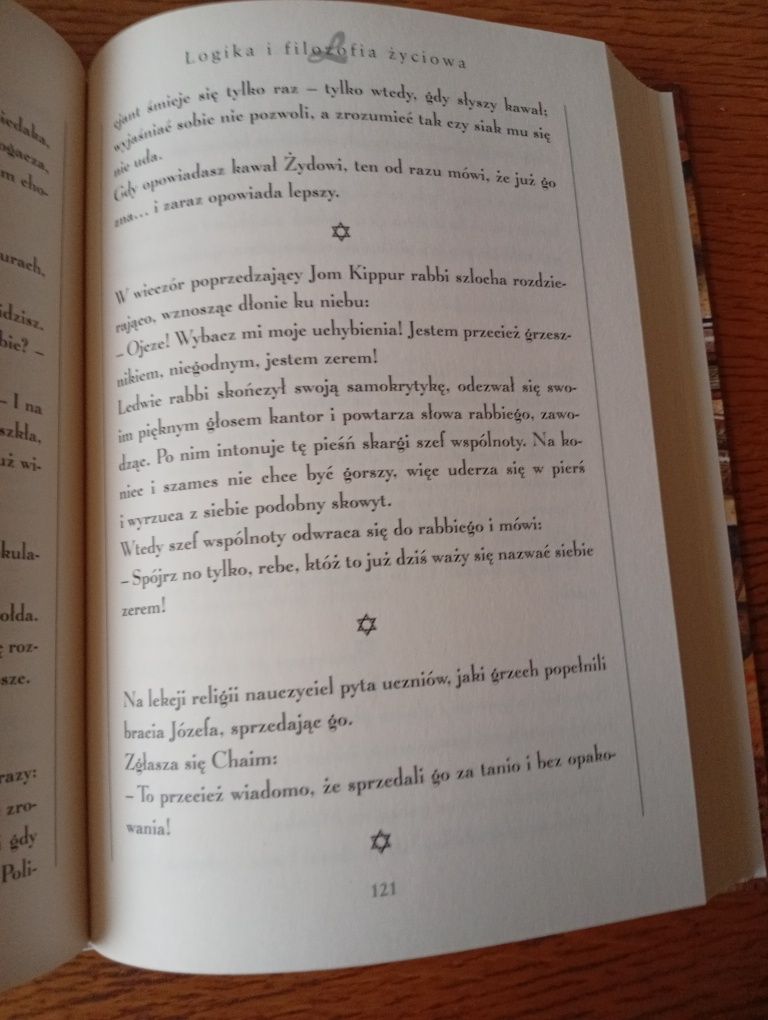 iedaka.
ogacza,
m cho-
urach,
idzisz.
bie? –
– I na
szkła,
uż wi-
kula-
ołda.
ę roz-
sze.
razy:
zro-
i gdy
Poli-
Logika i filozofia życiowa
cjant śmieje się tylko raz – tylko wtedy, gdy słyszy kawał;
wyjaśniać sobie nie pozwoli, a zrozumieć tak czy siak mu się
nie uda.
Gdy opowiadasz kawał Żydowi, ten od razu mówi, że już go
zna... i zaraz opowiada lepszy.
W wieczór poprzedzający Jom Kippur rabbi szlocha rozdzie-
rająco, wznosząc dłonie ku niebu:
– Ojcze! Wybacz mi moje uchybienia! Jestem przecież grzesz-
nikiem, niegodnym, jestem zerem!
Ledwie rabbi skończył swoją samokrytykę, odezwał się swo-
im pięknym głosem kantor i powtarza słowa rabbiego, zawo-
dząc. Po nim intonuje tę pieśń skargi szef wspólnoty. Na ko-
niec i szames nie chce być gorszy, więc uderza się w pierś
i wyrzuca z siebie podobny skowyt.
Wtedy szef wspólnoty odwraca się do rabbiego i mówi:
– Spójrz no tylko, rebe, któż to już dziś waży się nazwać siebie
zerem!
Na lekcji religii nauczyciel pyta uczniów, jaki grzech popełnili
bracia Józefa, sprzedając go.
Zgłasza się Chaim:
– To przecież wiadomo, że sprzedali go za tanio i bez opako-
wania!
121